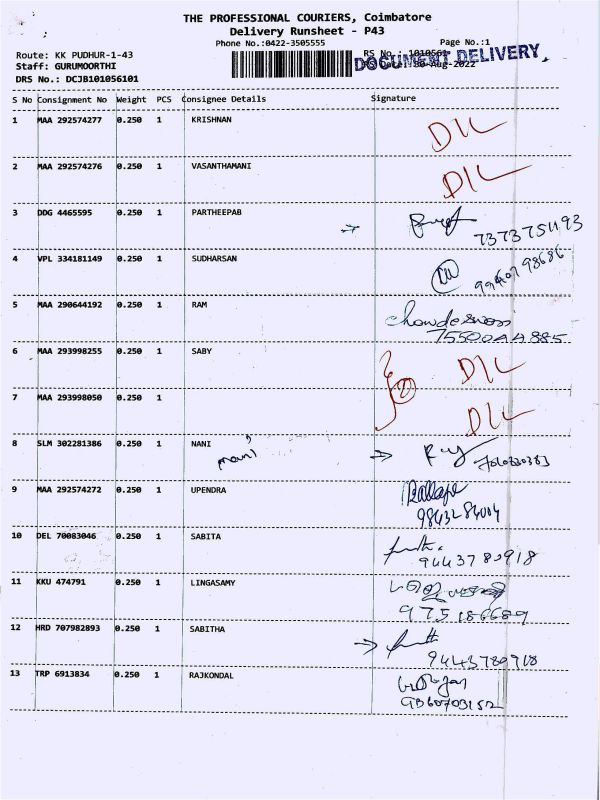 THE PROFESSIONAL COURIERS, Coimbatore
Delivery Runsheet - P43
Phone No.:0422-3505555
Page No.:1
Route: KK PUDHUR-1-43
RS No.: 1010561
DOCUMENT DELIVERY
Staff: GURUMOORTHI
RS Date: 30-Aug-2022
DRS No.: DCJB101056101
S No Consignment No Weight PCS Consignee Details Signature
1 MAA 292574277 0.250 1 KRISHNAN D/L
2 MAA 292574276 0.250 1 VASANTHAMANI D/L
3 DDG 4465595 0.250 1 PARTHEEPAB
4 VPL 334181149 0.250 1 SUDHARSAN
5 MAA 290644192 0.250 1 RAM
7550044885
6 MAA 293998255 0.250 1 SABY D/L
7 MAA 293998050 0.250 1 D/L
8 SLM 302281386 0.250 1 NANI
mani
9 MAA 292574272 0.250 1 UPENDRA
10 DEL 70083046 0.250 1 SABITA
9443789918
11 KKU 474791 0.250 1 LINGASAMY
975186689
12 HRD 707982893 0.250 1 SABITHA
13 TRP 6913834 0.250 1 RAJKONDAL